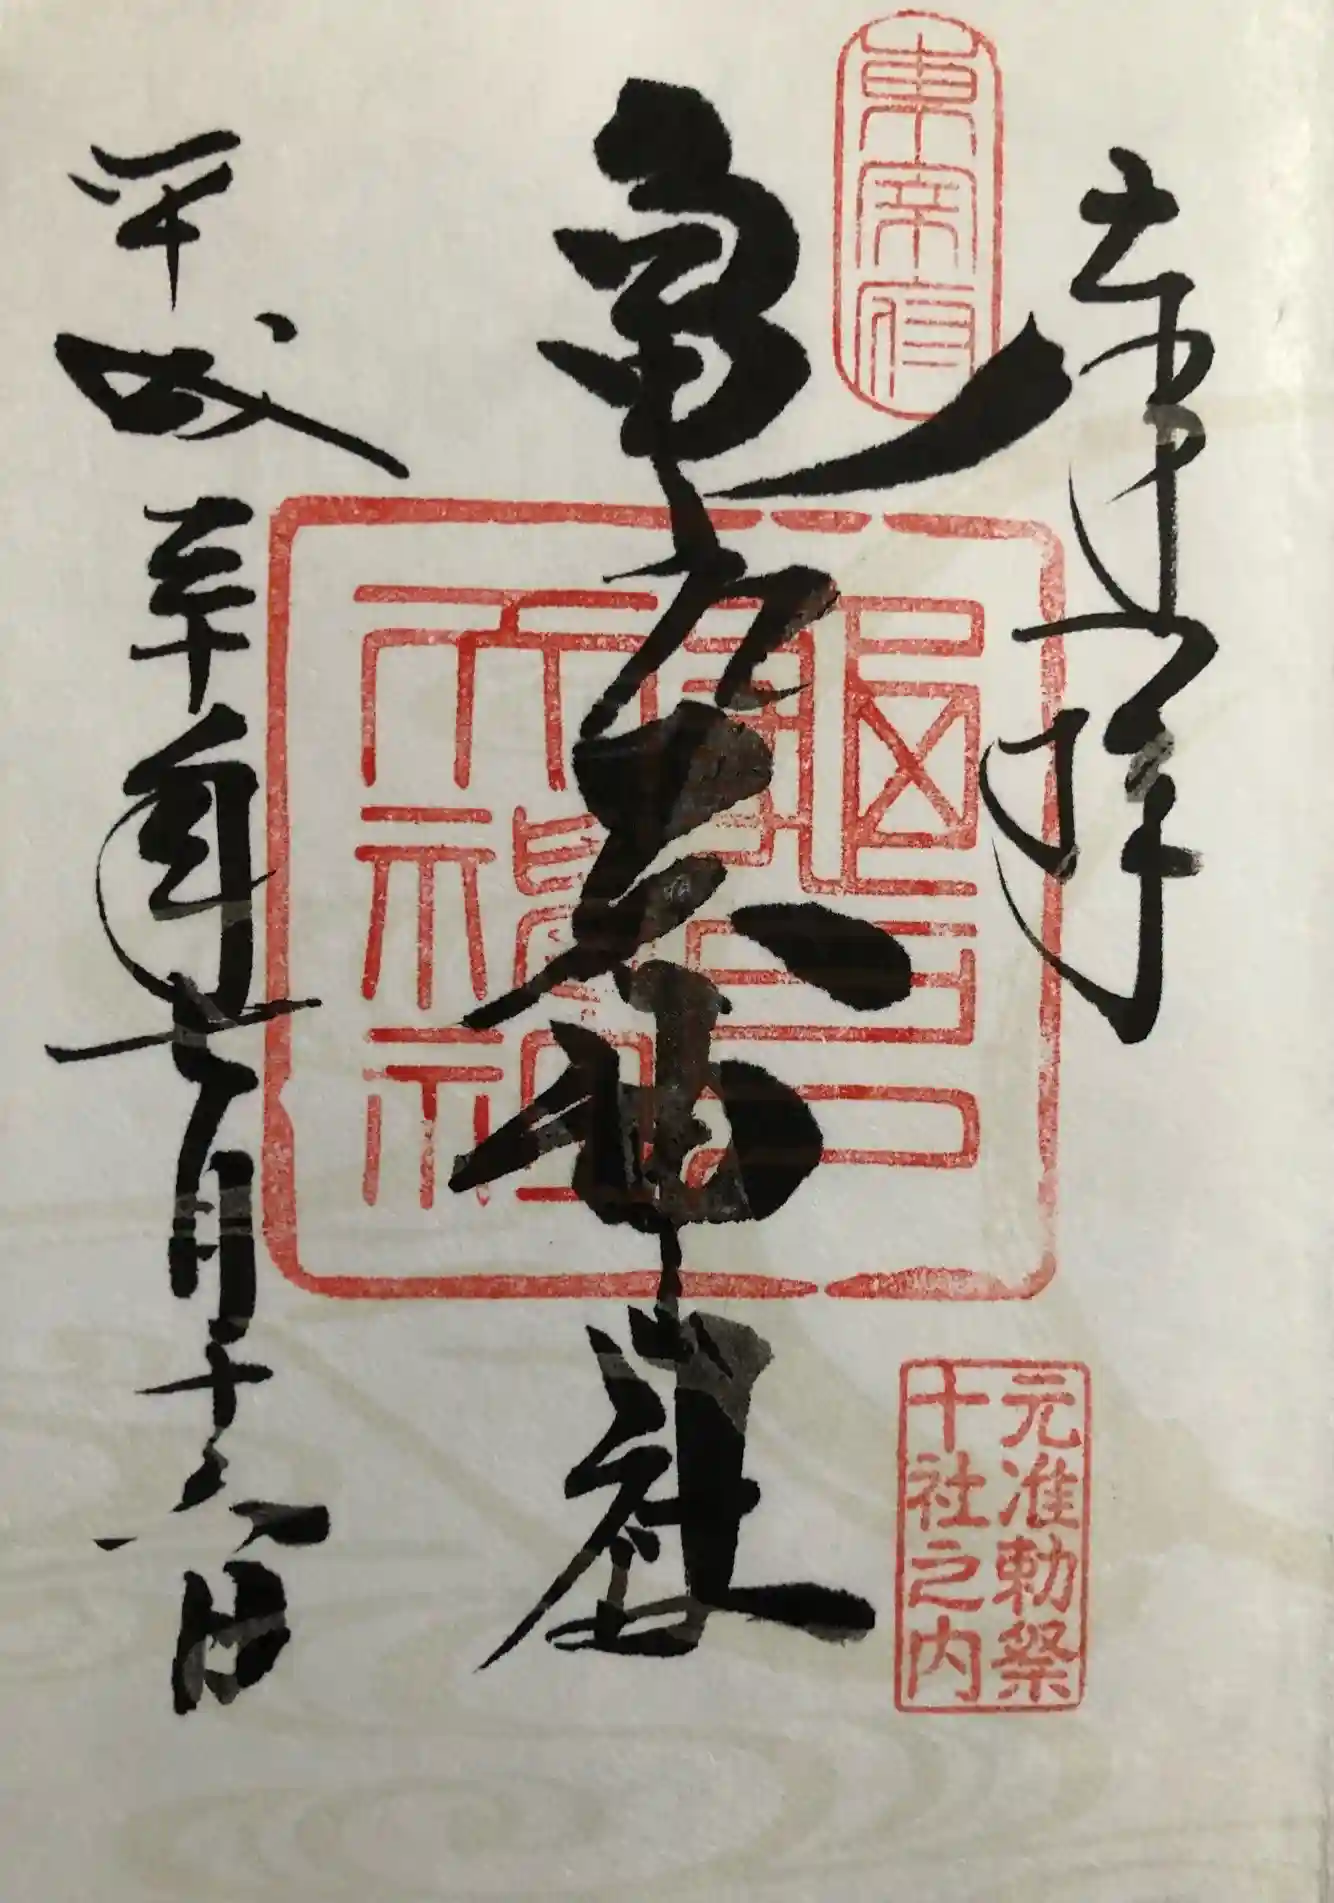 奉拝
東宰府
亀戸天神社
龜戸
天神社
元准勅祭
十社之内
平成三十年七月十六日